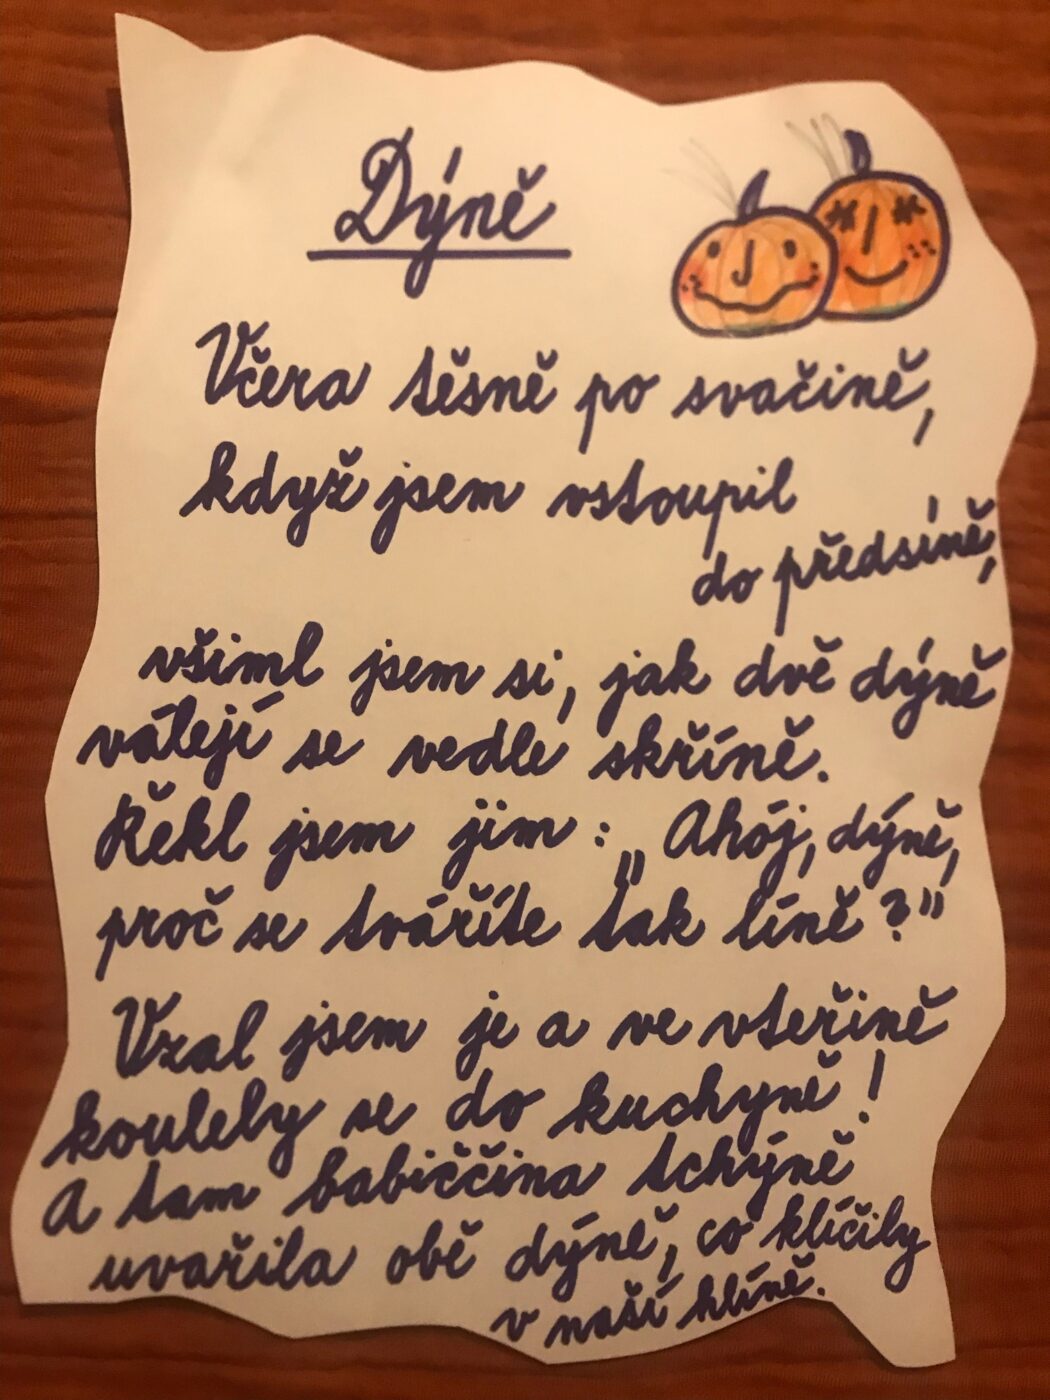 Dýně
Včera těsně po svačině,
když jsem vstoupil
do předsíně,
všiml jsem si, jak dvě dýně
válejí se vedle skříně.
Řekl jsem jim: „Ahój, dýně,
proč se tváříte tak líně?"
Vzal jsem je a ve vteřině
koulely se do kuchyně!
A tam babiččina tchýně
uvařila obě dýně, co klíčily
v naší hlíně.